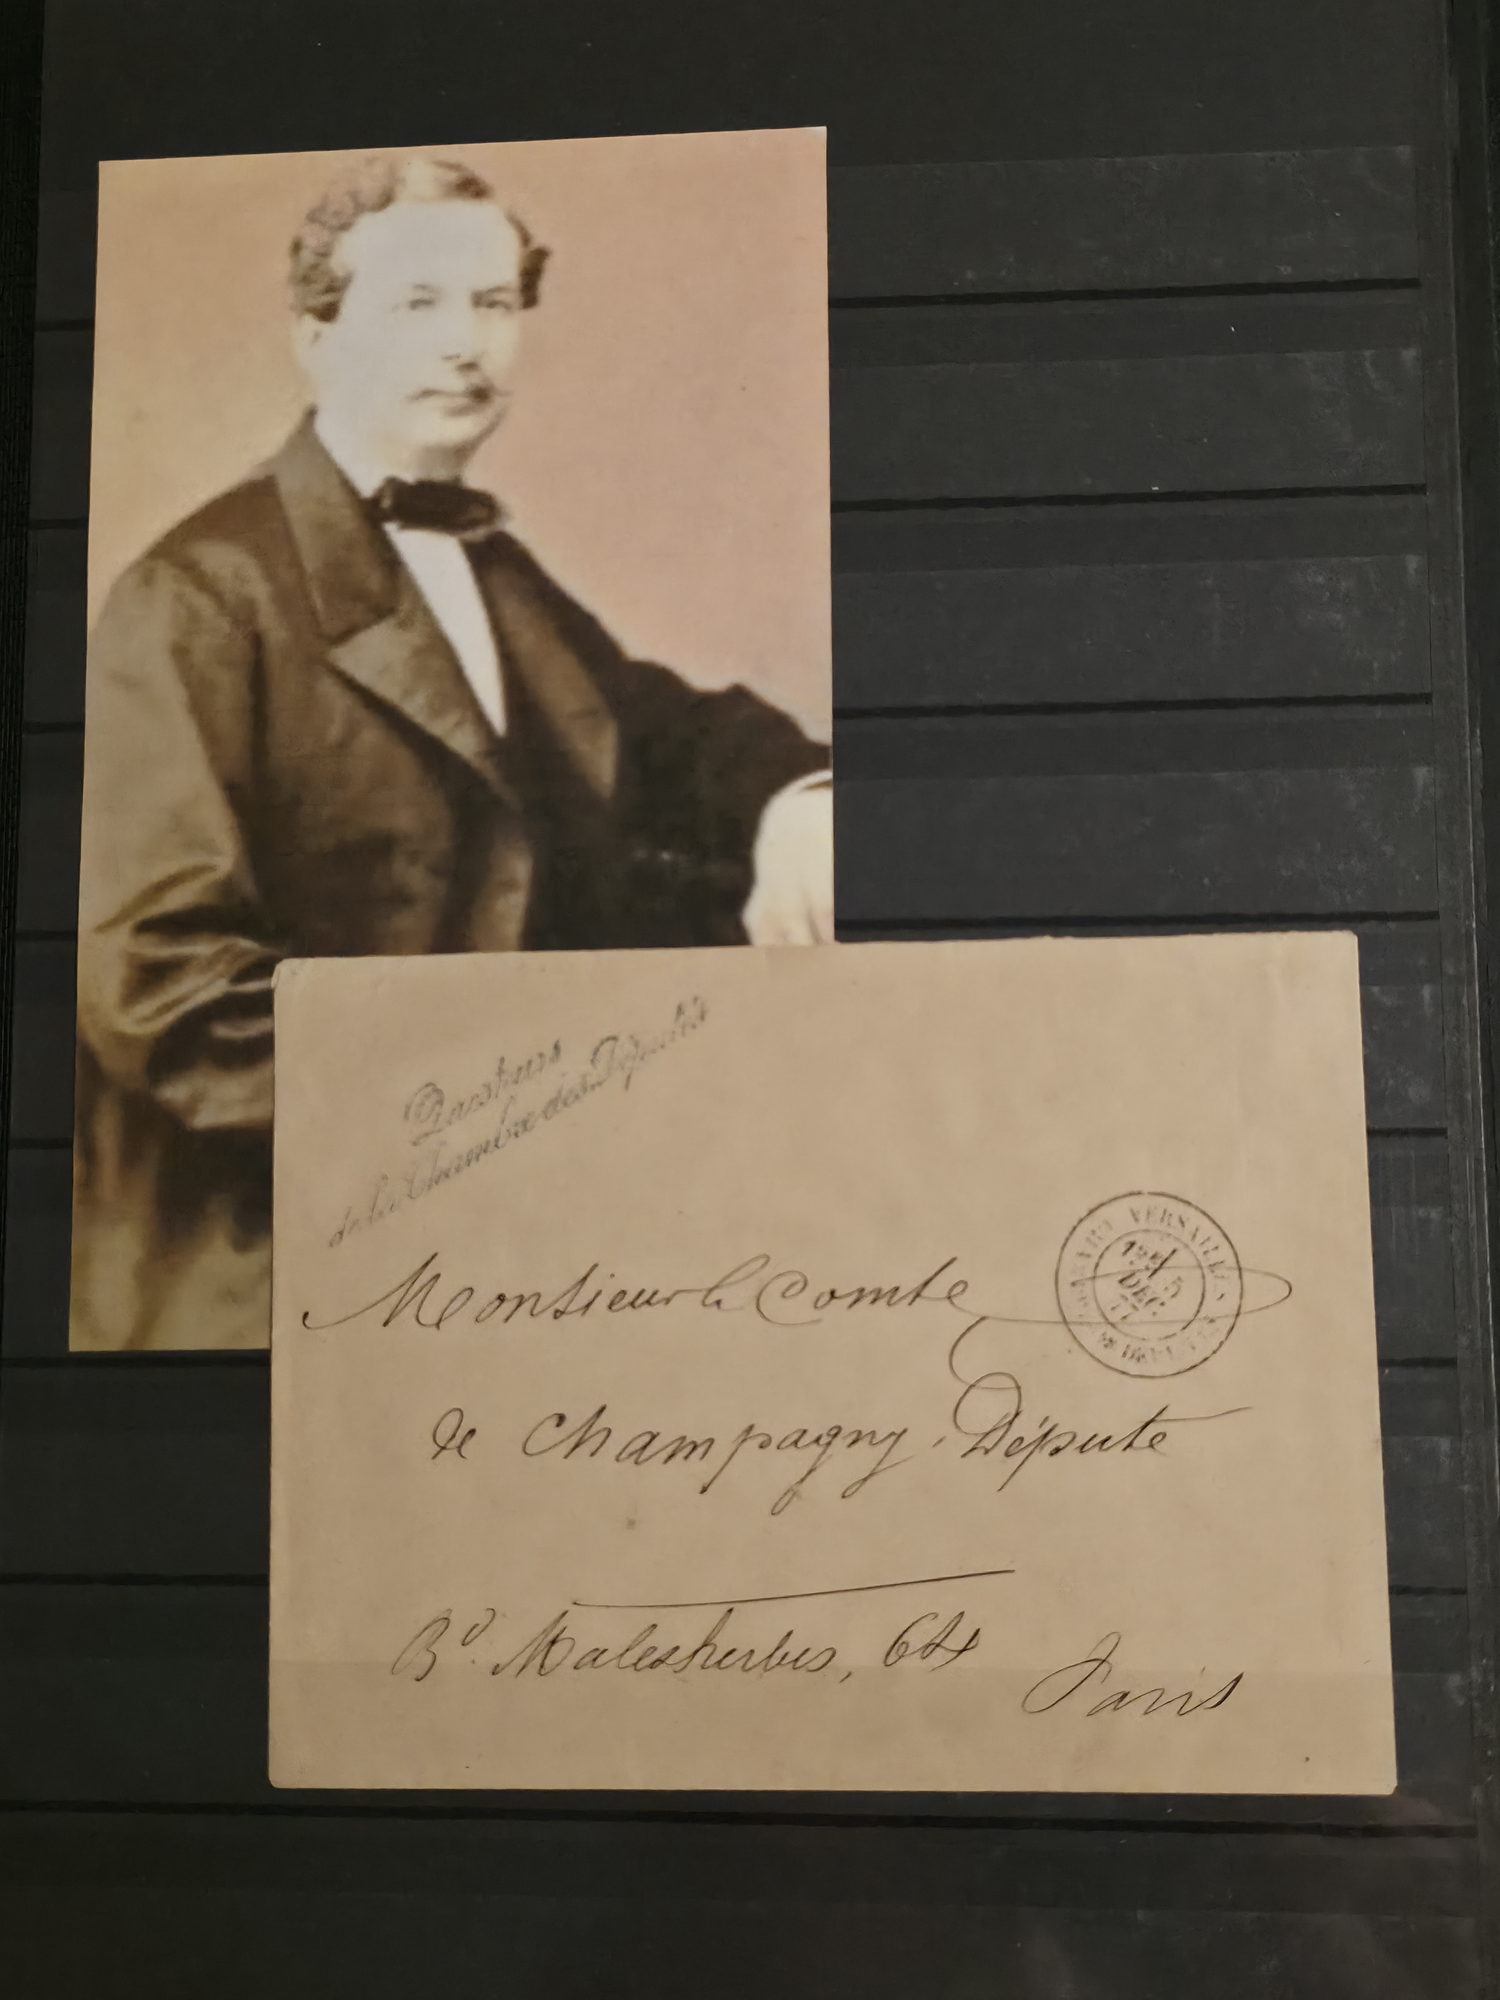 Questeurs
de la Chambre des Députés
VERSAILLES
5
DEC.
77
Monsieur le Comte
de Champagny. Députe
Bd. Malesherbes, 64
Paris